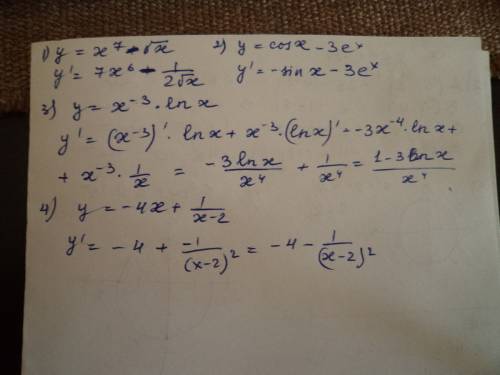 1) y = x⁷ - √x 2) y = cosx - 3eˣ
y' = 7x⁶ - 1/(2√x) y' = -sin x - 3eˣ
3) y = x⁻³ · ln x
y' = (x⁻³)' · ln x + x⁻³ · (ln x)' = -3x⁻⁴ · ln x +
+ x⁻³ · 1/x = -3 ln x/x⁴ + 1/x⁴ = (1-3 ln x)/x⁴
4) y = -4x + 1/(x-2)
y' = -4 + -1/(x-2)² = -4 - 1/(x-2)²